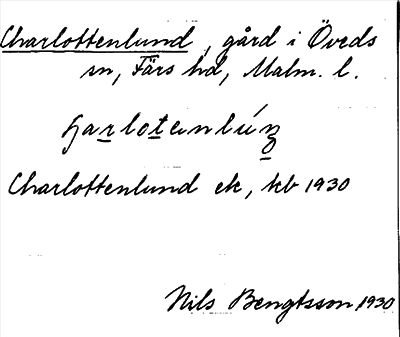 Charlottenlund, gård i Öveds
sn, Färs hd, Malm. l.
Charlottenlund ek, kb 1930
Nils Bengtsson, 1930